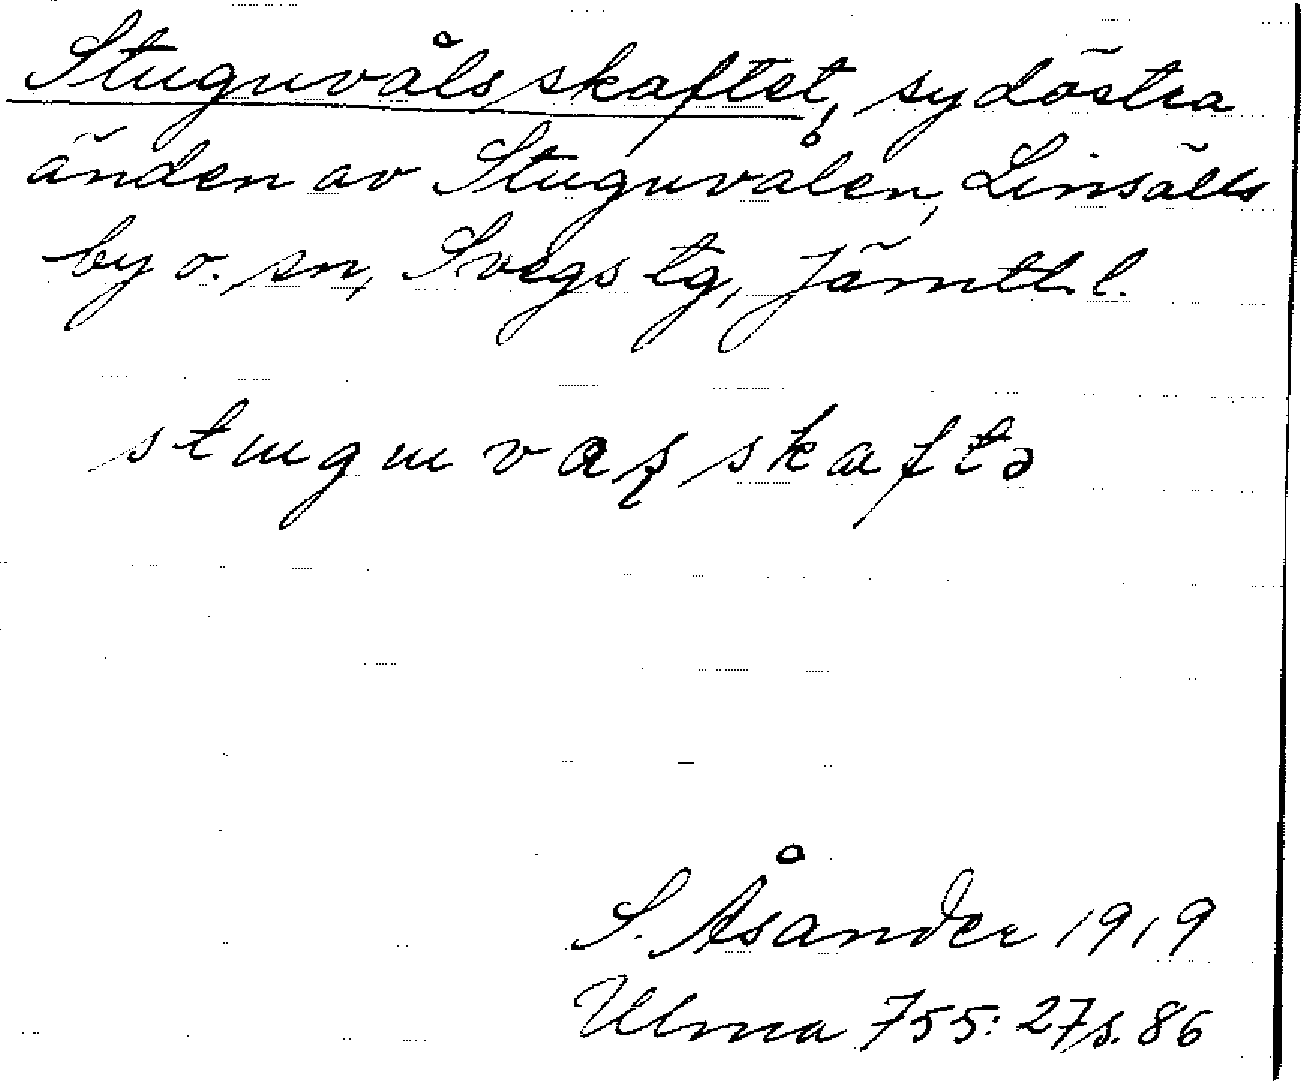 Stuguvålsskaftet, sydöstra
änden av Stuguvålen, Linsälls
by o. sn, Svegs tg, Jämtl. l.
skaftə
S. Åsander 1919
Ulma 755: 27 s. 86